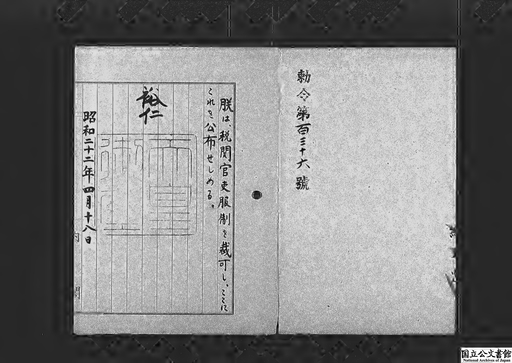 勅令第百三十六號
朕は、税関官吏服制を裁可し、ここに
これを公布せしめる。
裕仁
昭和二十二年四月十八日
内閣
国立公文書館
National Archives of Japan